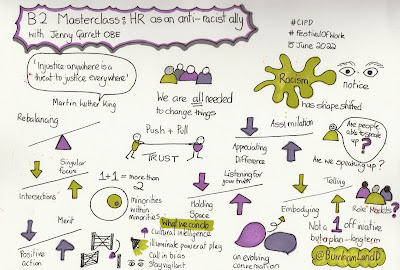 B2 Masterclass: HR as an anti-racist ally
with Jenny Garrett OBE
#CIPD
#FestivalOfWork
15 June 2022
'Injustice anywhere is a
threat to justice everywhere'
Martin Luther King
We are all needed
to change things
Racism
has shapeshifted
notice
Rebalancing
Singular
focus
Intersections
Merit
Positive
action
Push + Pull
TRUST
1+1 = more than
2
minorities
within
minorities
what we can do
cultural intelligence
illuminate power at play
call in bias
stay vigilant
Assimilation
Appreciating
Difference
Listening for
your truth
Holding
Space
an evolving
conversation
Are people
able to speak
up?
Are we speaking up?
Telling
Embodying
Role Models?
Not a 1 off initiative
but a plan - long term
@BurnhamLandD